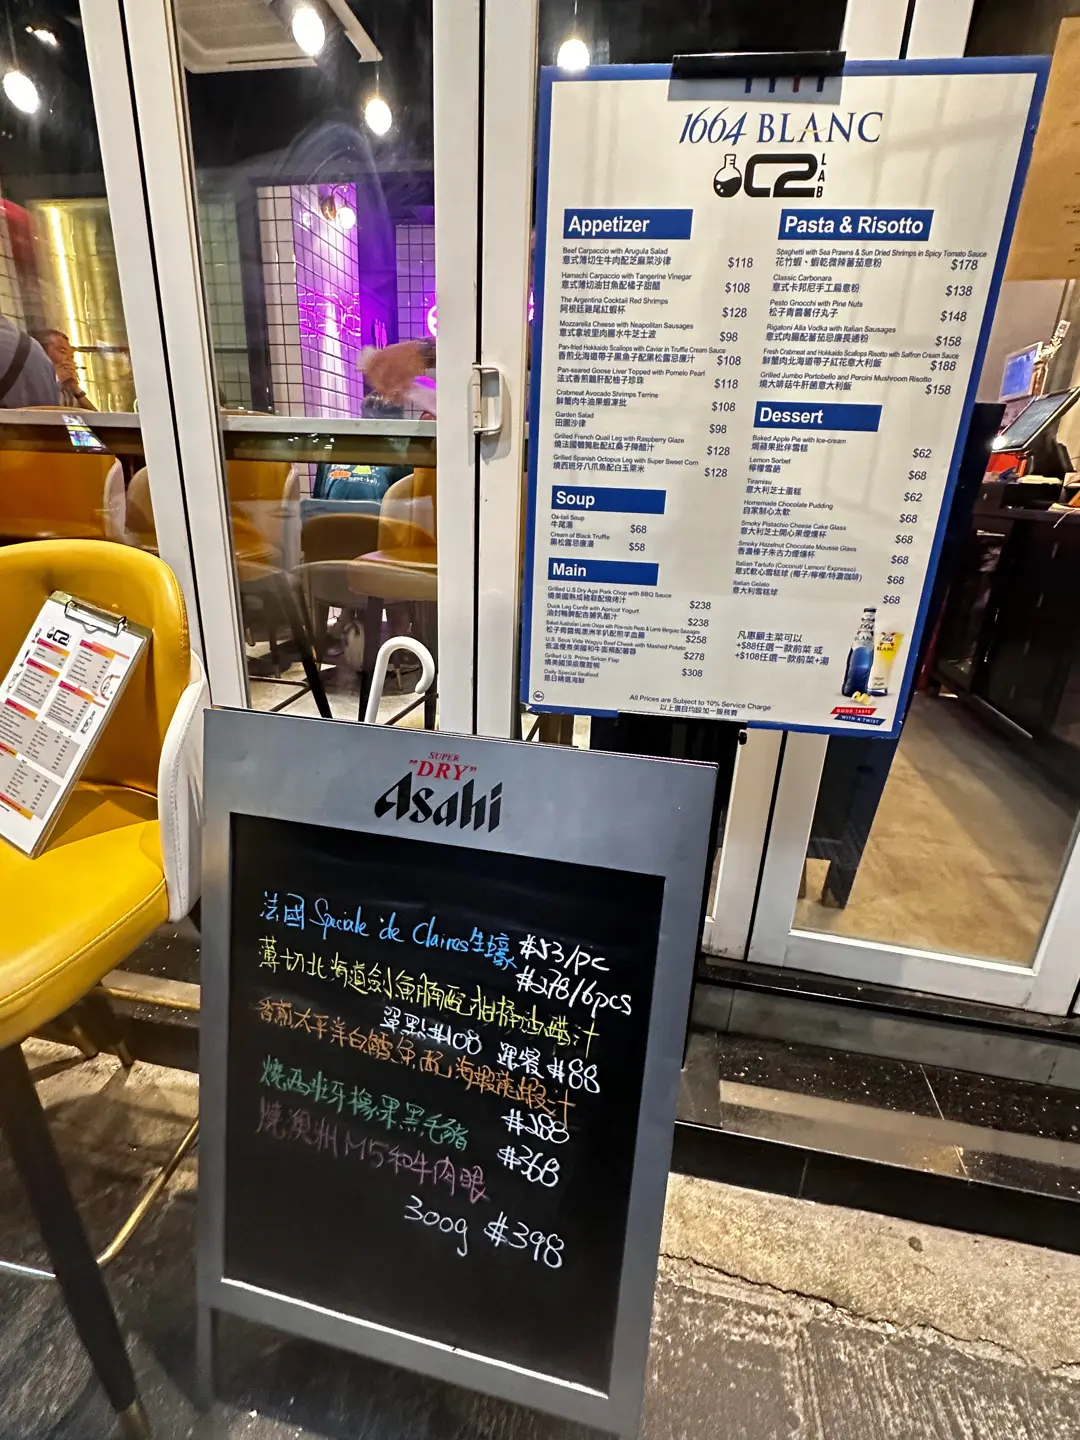 1664 BLANC
C2 LAB
Appetizer
Beef Carpaccio with Arugula Salad
意式薄切生牛肉配芝麻菜沙律 $118
Hamachi Carpaccio with Tangerine Vinegar
意式薄切油甘魚配橘子甜醋 $108
The Argentina Cocktail Red Shrimps
阿根廷雞尾紅蝦杯 $128
Mozzarella Cheese with Neapolitan Sausages
意式拿坡里肉腸水牛芝士波 $98
Pan-fried Hokkaido Scallops with Caviar in Truffle Cream Sauce
香煎北海道帶子黑魚子配黑松露忌廉汁 $108
Pan-seared Goose Liver Topped with Pomelo Pearl
法式香煎鵝肝配柚子珍珠 $118
Crabmeat Avocado Shrimps Terrine
鮮蟹肉牛油果蝦凍批 $108
Garden Salad
田園沙律 $98
Grilled French Quail Leg with Raspberry Glaze
燒法國鵪鶉髀配紅桑子陳醋汁 $128
Grilled Spanish Octopus Leg with Super Sweet Corn
燒西班牙八爪魚配白玉粟米 $128
Soup
Ox-tail Soup
牛尾湯 $68
Cream of Black Truffle
黑松露忌廉湯 $58
Main
Grilled U.S Dry Age Pork Chop with BBQ Sauce
燒美國熟成豬鞍配燒烤汁 $238
Duck Leg Confit with Apricot Yogurt
油封鴨髀配杏脯乳酪汁 $238
Baked Australian Lamb Chops with Pine-nuts Pesto & Lamb Merguez Sausages
$258
U.S. Sous Vide Wagyu Beef Cheek with Mashed Potato
低溫慢煮美國和牛面頰配薯蓉 $278
Grilled U.S. Prime Sirloin Flap
$308
Daily Special Seafood
是日精選海鮮
Pasta & Risotto
Spaghetti with Sea Prawns & Sun Dried Shrimps in Spicy Tomato Sauce
花竹蝦、蝦乾微辣蕃茄意粉 $178
Classic Carbonara
意式卡邦尼手工扁意粉 $138
Pesto Gnocchi with Pine Nuts
松子青醬薯仔丸子 $148
Rigatoni Alla Vodka with Italian Sausages
意式肉腸配蕃茄忌廉長通粉 $158
Fresh Crabmeat and Hokkaido Scallops Risotto with Saffron Cream Sauce
鮮蟹肉北海道帶子紅花意大利飯 $188
Grilled Jumbo Portobello and Porcini Mushroom Risotto
燒大啡菇牛肝菌意大利飯 $158
Dessert
Baked Apple Pie with Ice-cream
焗蘋果批伴雪糕 $62
Lemon Sorbet
檸檬雪葩 $68
Tiramisu
意大利芝士蛋糕 $62
Homemade Chocolate Pudding
自家制心太軟 $68
Smoky Pistachio Cheese Cake Glass
意大利芝士開心果煙燻杯 $68
Smoky Hazelnut Chocolate Mousse Glass
香濃榛子朱古力煙燻杯 $68
Italian Tartufo (Coconut/ Lemon/ Expresso)
意式軟心雪糕球 (椰子/檸檬/特濃咖啡) $68
Italian Gelato
意大利雪糕球 $68
凡惠顧主菜可以
+$88任選一款前菜 或
+$108任選一款前菜+湯
GOOD TASTE
WITH A TWIST
All Prices are Subject to 10% Service Charge
以上價目均設加一服務費
SUPER
"DRY"
Asahi
法國 Speciale de Claires 生蠔 $53/pc
$278/6pcs
薄切北海道劍魚腩配柑橘油醋汁
單點$108 跟餐$88
香煎太平洋白鱈魚配海蝦龍蝦汁
$288
燒西班牙橡果黑毛豬 $368
燒澳洲M5和牛肉眼
300g $398
C2